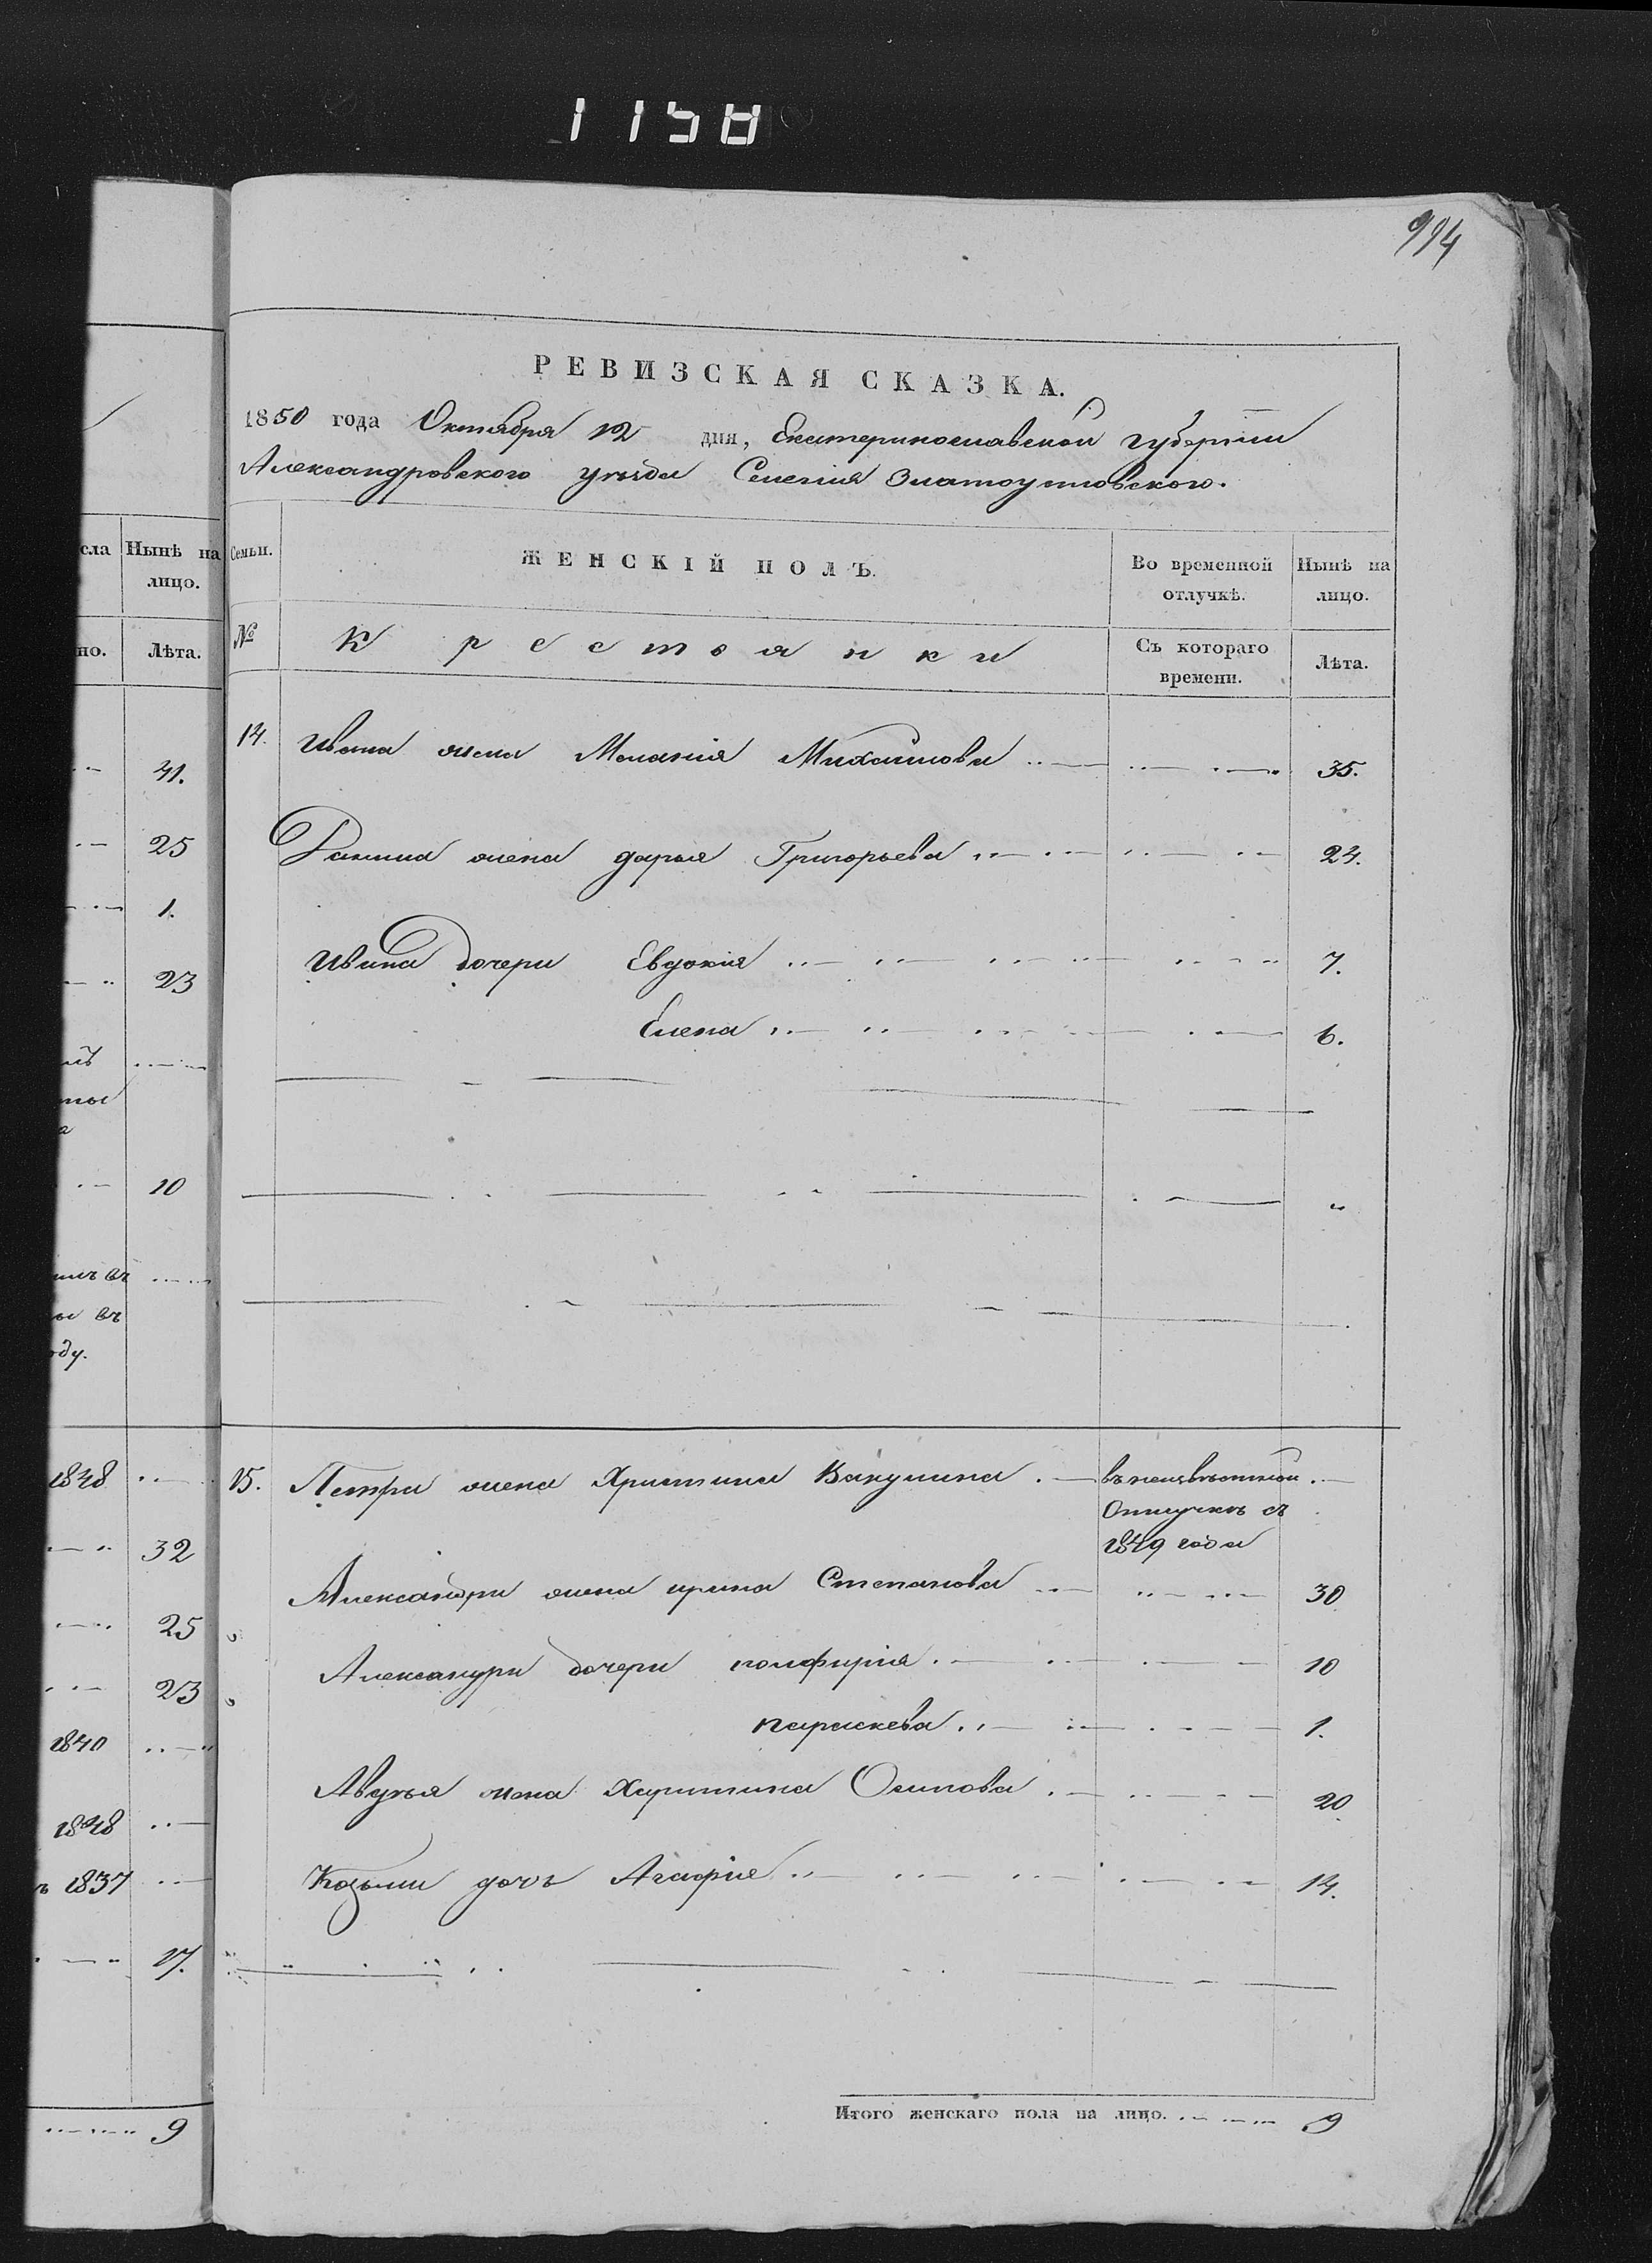 1158
994
РЕВИЗСКАЯ СКАЗКА.
1850 года Октября 12 дня, Екатеринославской губернии
Александровского уезда Селения Златоустовского.
сла
Нынѣ на лицо.
но.
Лѣта.
41.
25
1.
23
10
1848
32
25
23
1840
1848
1837
17.
9
Семьи.
ЖЕНСКІЙ ПОЛЪ.
Во временной отлучкѣ.
Нынѣ на лицо.
№
Крестьянки
Съ котораго времени.
Лѣта.
14. Ивана жена Меланія Михайлова 35.
жена дарья Григорьева 24.
Ивана дочери Евдокія 7.
Елена 6.
15. Петра жена Христина Вакулина въ неизвѣстной
Отлучкѣ съ
1849 года
Александра жена ирина Степанова 30
Александра дочери 10
параскева 1.
Авдѣя жена Харитина Осипова 20
Козьмы дочь Агафія 14.
Итого женскаго пола на лицо. 9